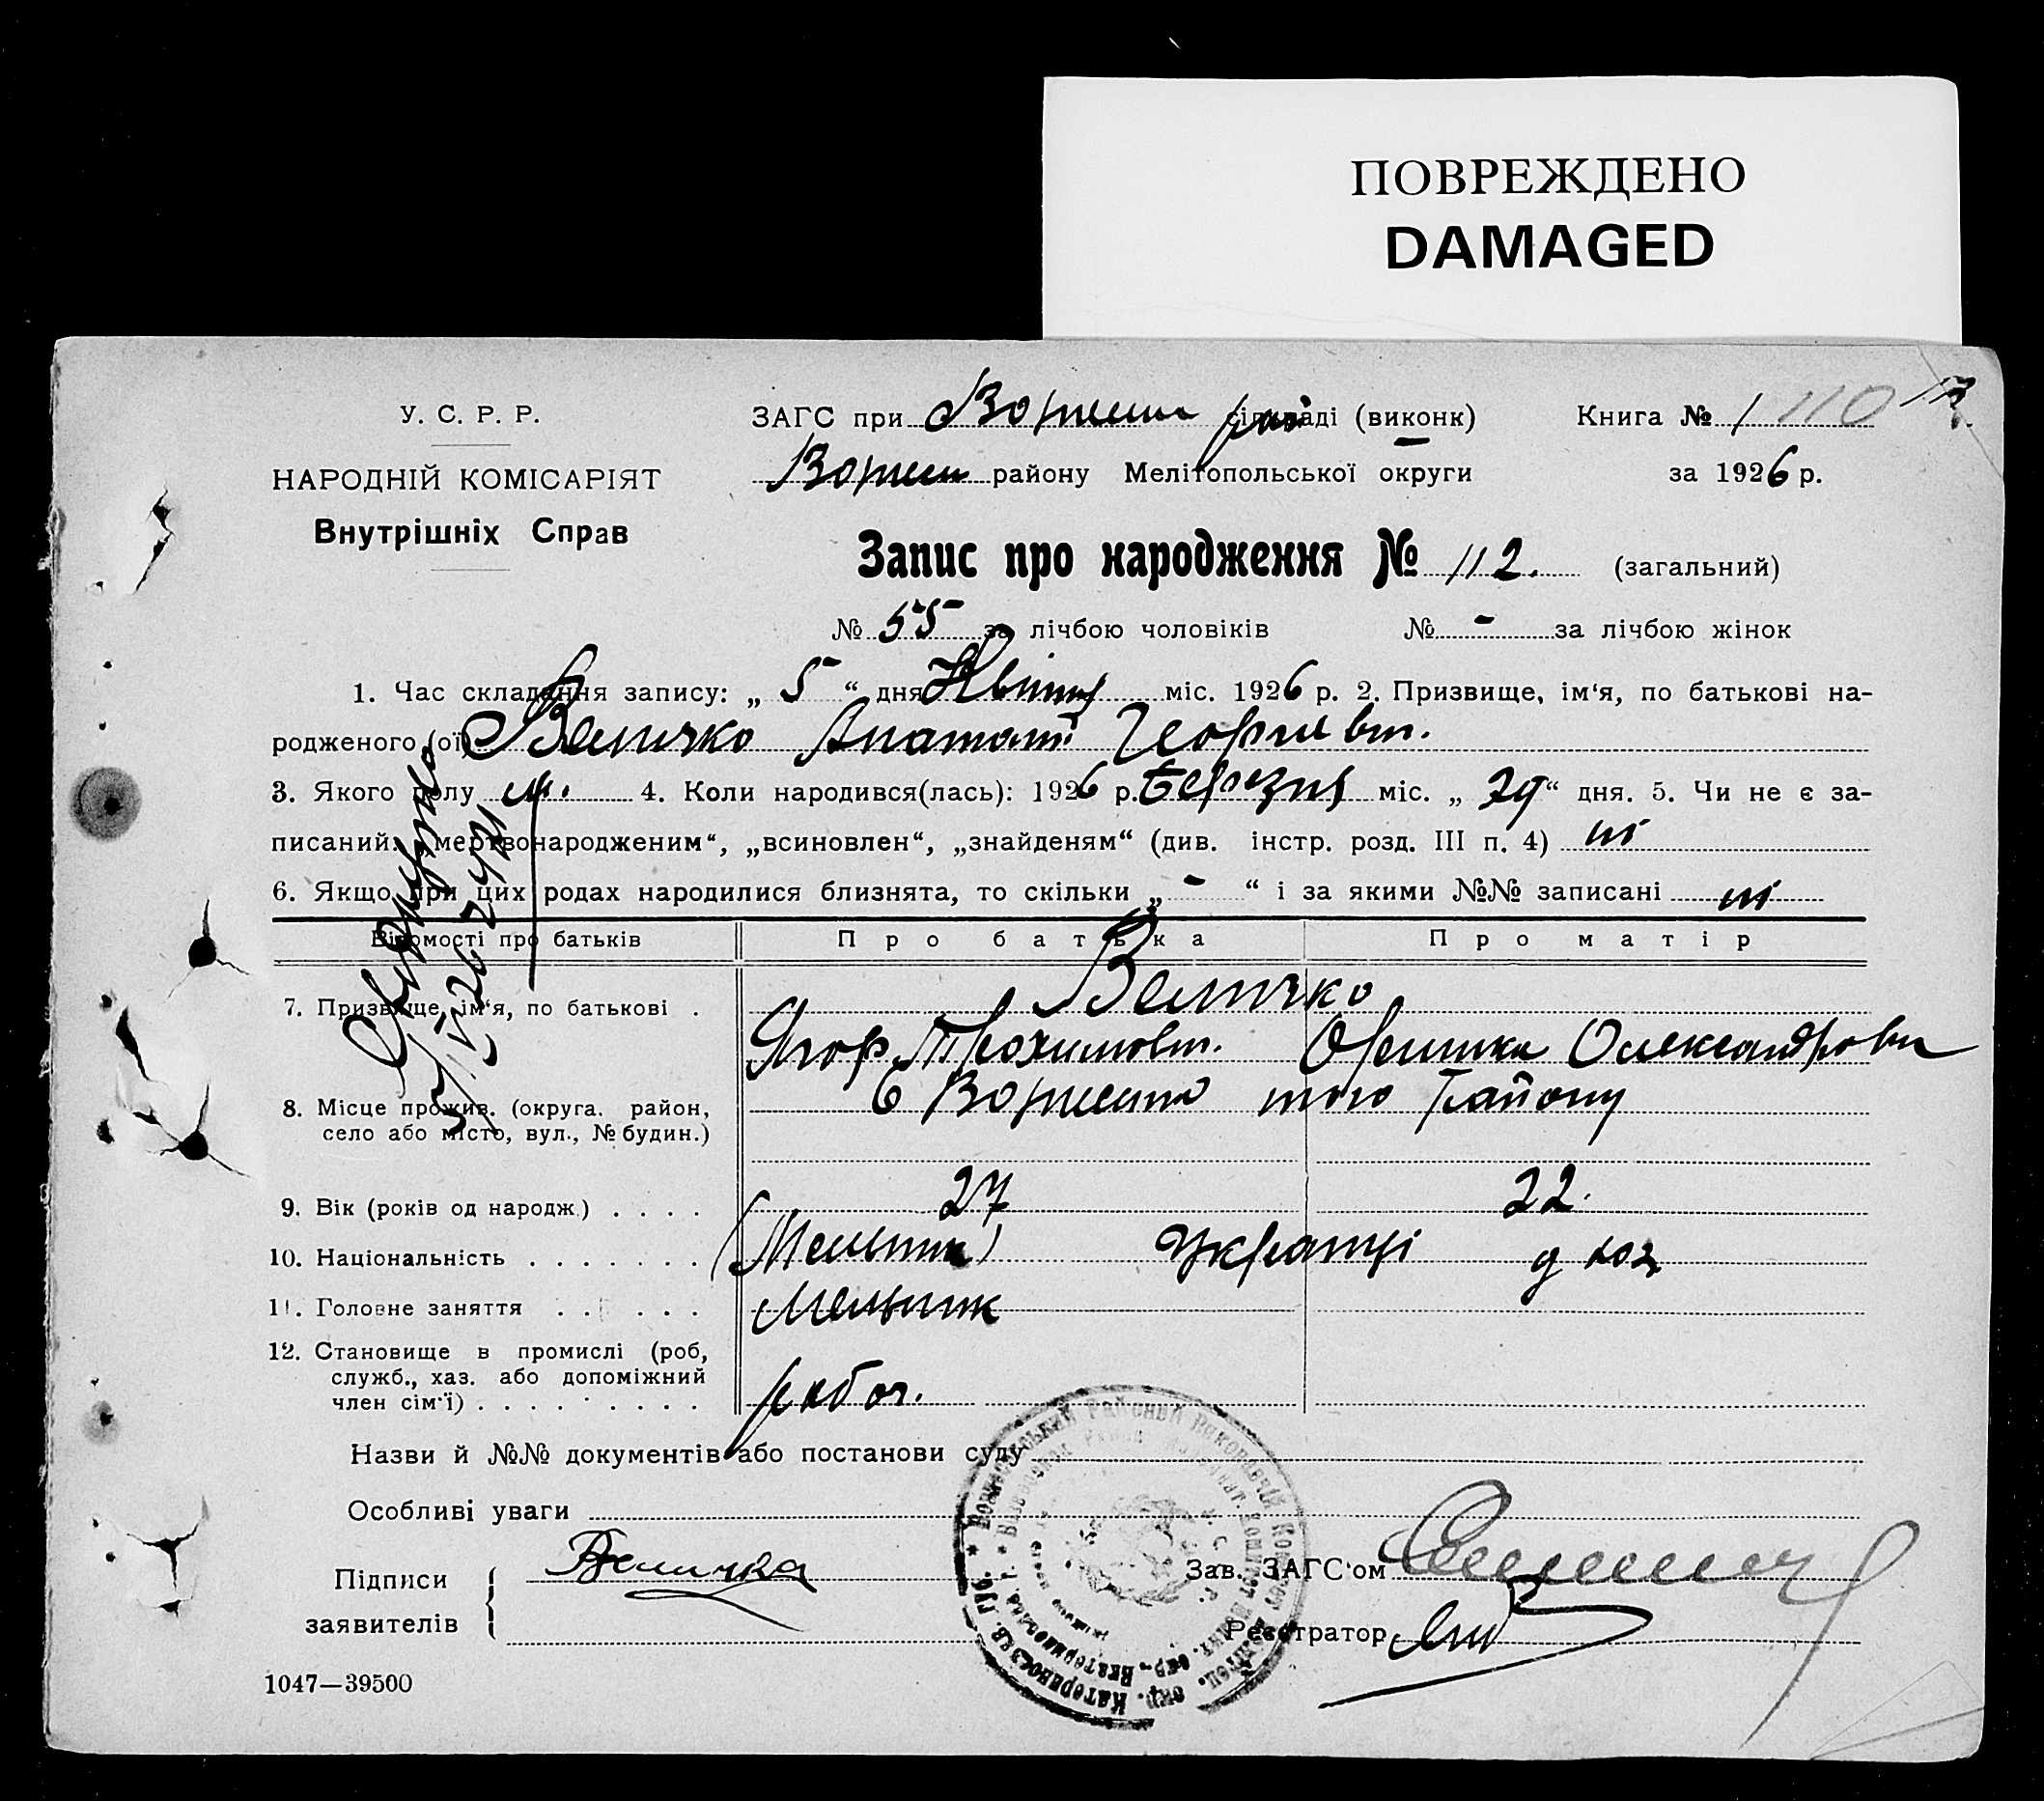 ПОВРЕЖДЕНО
DAMAGED
У. С. Р. Р.
НАРОДНІЙ КОМІСАРІЯТ
Внутрішніх Справ
ЗАГС при сільраді (виконк)
району Мелітопольської округи
Книга № 1 110
за 1926 р.
Запис про народження № 112. (загальний)
№ 55 за лічбою чоловіків № - за лічбою жінок
1. Час складання запису: „ 5 “ дня Квітня міс. 1926 р. 2. Призвище, ім‘я, по батькові на-
родженого (ої) Величко Анатолій Георгіевич.
3. Якого полу м. 4. Коли народився(лась): 1926 р. Березня міс. „ 29 “ дня. 5. Чи не є за-
писаний: „мертвонародженим“, „всиновлен“, „знайденям“ (див. інстр. розд. III п. 4) ні
6. Якщо при цих родах народилися близнята, то скільки „ - “ і за якими №№ записані ні
Відомості про батьків Про батька Про матір
7. Призвище, ім‘я, по батькові . Величко
Ягор Трохимович. Олександровна
8. Місце прожив. (округа. район, того Району
село або місто, вул., № будин.)
9. Вік (років од народж.) . . . . 27 22.
10. Національність . . . . . . . (Мельник) Українці
11. Головне заняття . . . . . . Мельник
12. Становище в промислі (роб,
служб., хаз. або допоміжний
член сім‘ї) . . . . . . . . . робоч.
Назви й №№ документів або постанови суду
Особливі уваги
Підписи
заявителів
Величка
Зав. ЗАГС‘ом
Реєстратор
1047—39500